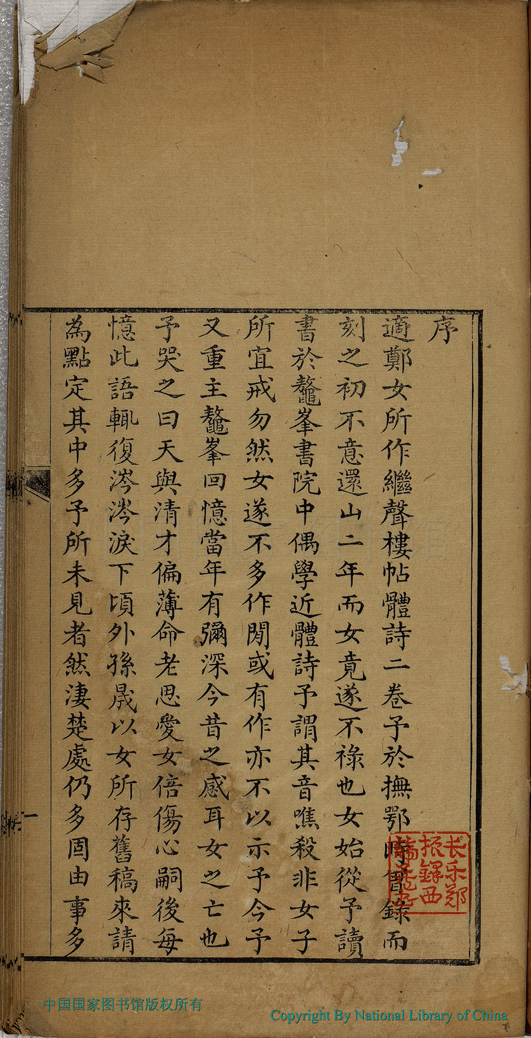 序
適鄭女所作繼聲樓帖體詩二卷予於撫鄂時曾錄而
刻之初不意還山二年而女竟遂不祿也女始從予讀
書於鼇峯書院中偶學近體詩予謂其音噍殺非女子
所宜戒勿然女遂不多作閒或有作亦不以示予今予
又重主鼇峯回憶當年有彌深今昔之感耳女之亡也
予哭之曰天與清才偏薄命老思愛女倍傷心嗣後每
憶此語輒復涔涔淚下頃外孫晟以女所存舊稿來請
為點定其中多予所未見者然淒楚處仍多固由事多
一
长乐郑
振铎西
谛藏书
中国国家图书馆版权所有
Copyright By National Library of China